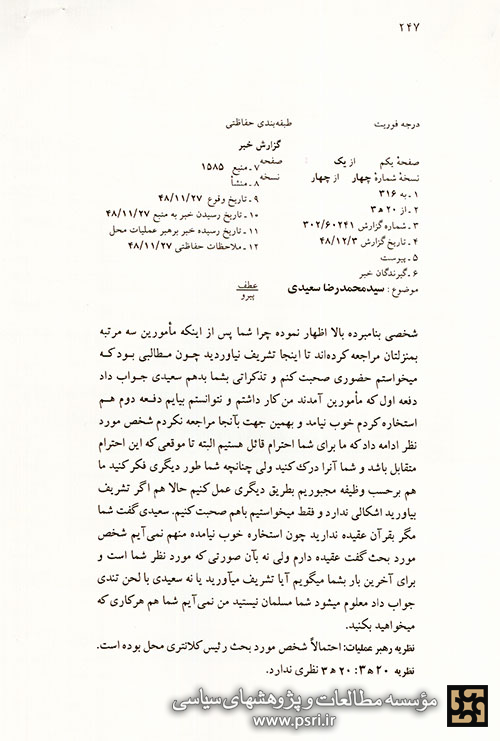 ۲۴۷
درجه فوریت
طبقه‌بندی حفاظتی
گزارش خبر
صفحهٔ یکم از یک : صفحه
نسخهٔ شمارهٔ چهار از چهار نسخه
۱ـ به ۳۱۶
۲ـ از ۲۰ ه‍ ۳
۳ـ شماره گزارش ۳۰۲/۶۰۲۴۱
۴ـ تاریخ گزارش ۴۸/۱۲/۳
۵ـ پیوست
۶ـ گیرندگان خبر
۷ـ منبع ۱۵۸۵
۸ـ منشأ
۹ـ تاریخ وقوع ۴۸/۱۱/۲۷
۱۰ـ تاریخ رسیدن خبر به منبع ۴۸/۱۱/۲۷
۱۱ـ تاریخ رسیده خبر برهبر عملیات محل
۱۲ـ ملاحظات حفاظتی ۴۸/۱۱/۲۷
موضوع : سیدمحمدرضا سعیدی
عطف
پیرو
شخصی بنامبرده بالا اظهار نموده چرا شما پس از اینکه مأمورین سه مرتبه
بمنزلتان مراجعه کرده‌اند تا اینجا تشریف نیاوردید چون مطالبی بود که
میخواستم حضوری صحبت کنم و تذکراتی بشما بدهم سعیدی جواب داد
دفعه اول که مأمورین آمدند من کار داشتم و نتوانستم بیایم دفعه دوم هم
استخاره کردم خوب نیامد و بهمین جهت بآنجا مراجعه نکردم شخص مورد
نظر ادامه داد که ما برای شما احترام قائل هستیم البته تا موقعی که این احترام
متقابل باشد و شما آنرا درك کنید ولی چنانچه شما طور دیگری فکر کنید ما
هم برحسب وظیفه مجبوریم بطریق دیگری عمل کنیم حالا هم اگر تشریف
بیاورید اشکالی ندارد و فقط میخواستیم باهم صحبت کنیم. سعیدی گفت شما
مگر بقرآن عقیده ندارید چون استخاره خوب نیامده منهم نمی‌آیم شخص
مورد بحث گفت عقیده دارم ولی نه بآن صورتی که مورد نظر شما است و
برای آخرین بار بشما میگویم آیا تشریف میآورید یا نه سعیدی با لحن تندی
جواب داد معلوم میشود شما مسلمان نیستید من نمی‌آیم شما هم هرکاری که
میخواهید بکنید.
نظریه رهبر عملیات: احتمالاً شخص مورد بحث رئیس کلانتری محل بوده است.
نظریه ۲۰ ه‍ ۳: ۲۰ ه‍ ۳ نظری ندارد.
مؤسسه مطالعات و پژوهشهای سیاسی
www.psri.ir